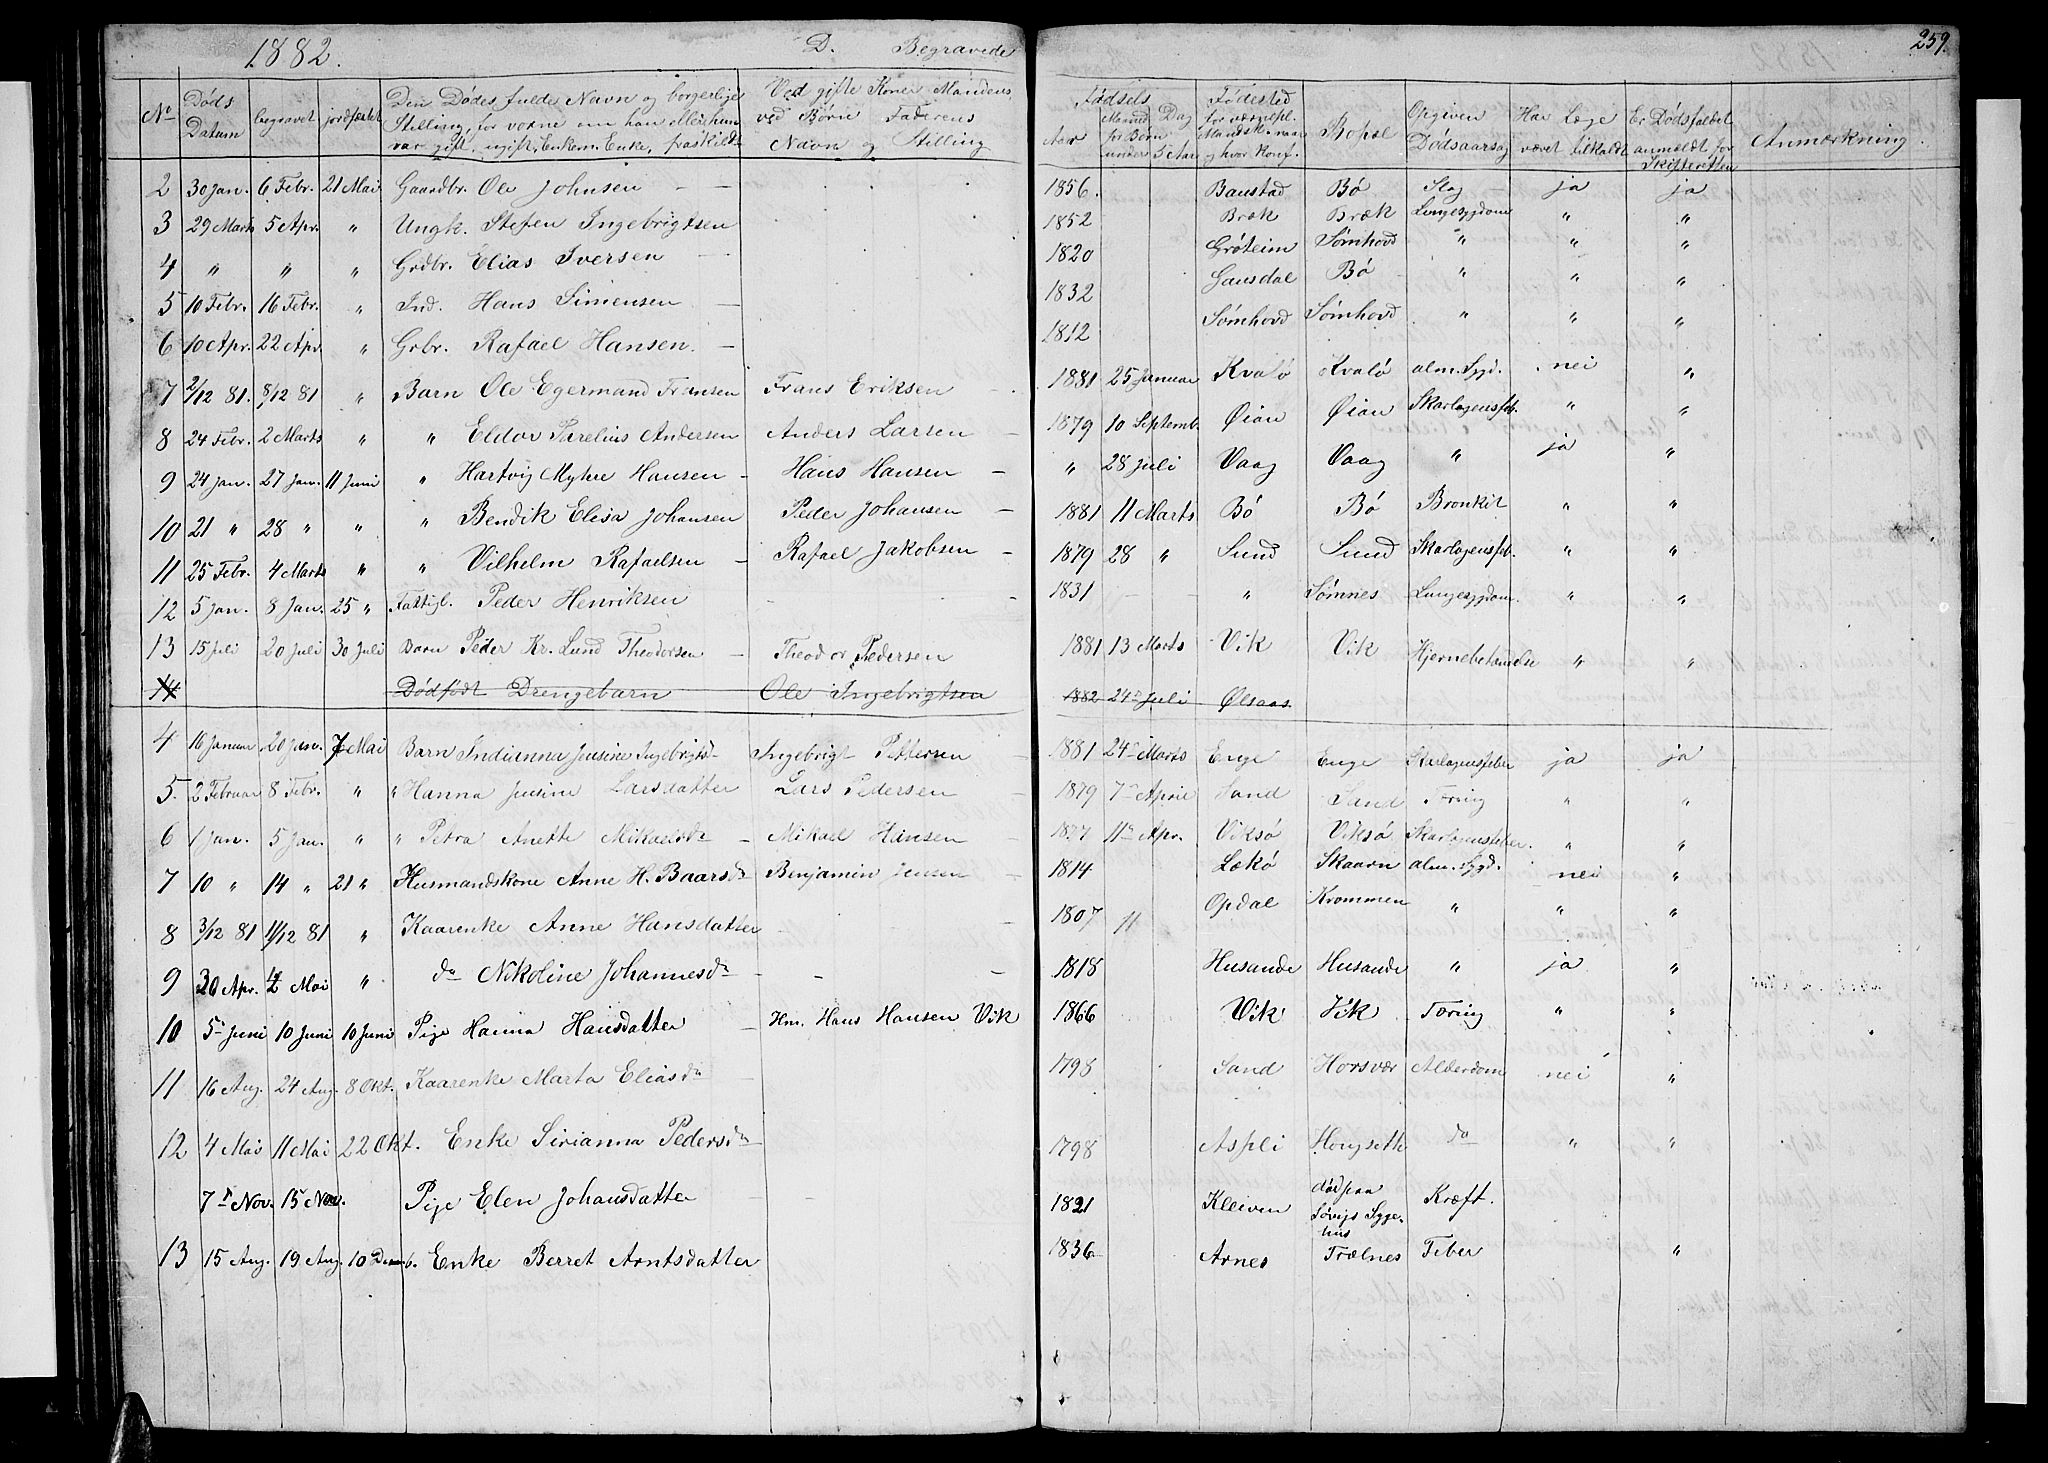 1882. D. Begravede 259.
No Døds Datum begravet jordfæstet Den Dødes fulde Navn og borgerlige Stilling, for voxne om han eller hun var gift, ugift, Enkem. Enke, fraskildt Ved gifte Koner Mandens, ved Børn Faderens Navn og Stilling Fødsels Aar Maaned for Børn under Dag 5 Aar Fødested for værnepl. Mandsk. naar og hvor Konf. Bopæl Opgiven Dødsaarsag Har Læge været tilkaldt Er Dødsfaldet anmeldt for Skifteretten Anmærkning
2 30 Jan. 6 Febr. 21 Mai Gaardbr. Ole Johnsen 1856. Baustad Bø Slag ja ja
3 29 Marts 5 Apr. " Ungk. Stefen Ingebrigtsen 1852 Bræk Bræk Lungesygdom " "
4 " " " Grdbr. Elias Iversen 1820 Grøteim Sømhovd " " "
5 10 Febr. 16 Febr. " Ind. Hans Simensen 1832 Gausdal Bø " " "
6 10 Apr. 22 Apr. " Grbr. Rafael Hansen. 1812 Sømhovd Sømhovd " " "
7 2/12 81. 8/12 81 " Barn Ole Egermand Fransen Frans Eriksen 1881 25 Januar Kvalø Kvalø alm. Sygd. nei "
8 24 Febr. 2 Marts " " Eldor Parelius Andersen Anders Larsen 1879 10 Septemb. Øian Øian Skarlagensfeb. " "
9 24 Jan. 27 Jan. 11 Juni " Hartvig Myhre Hansen Hans Hansen " 28 Juli Vaag Vaag " ja "
10 21 " 28 " " " Bendik Elisa Johansen Peder Johansen 1881 11 Marts Bø Bø Bronkit " "
11 25 Febr. 4 Marts " " Vilhelm Rafaelsen Rafael Jakobsen 1879 28 " Sund Sund Skarlagensfeb. " "
12 5 Jan. 8 Jan. 25 " Fattigl. Peder Henriksen 1831 " Sømnes Lungesygdom. " "
13 15 Juli 20 Juli 30 Juli Barn Peder Kr. Lund Theodorsen Theodor Pedersen 1881 13 Marts Vik Vik Hjernebetændelse " "
14 Dødfødt Drengebarn Ole Ingebrigtsen 1882 24de Juli Ølsaas.
4 16 Januar 20 Jan. 7 Mai Barn Indianna Jensine Ingebrigtsd Ingebrigt Pettersen 1881 24de Marts Enge Enge Skarlagensfeber ja ja
5. 2 Februar 8 Febr. " " Hanna Jensine Larsdatter Lars Pedersen 1879 7de April Sand Sand Tæring " "
6 1 Jan. 5 Jan. " " Petra Anette Mikaelsdr Mikael Hansen 1877 11te Apr. Viksø Viksø Skarlagensfeber. " "
7 10 " 14 " 21 " Husmandskone Anne H. Baarsdr Benjamin Jensen 1814 Lekø Skaarn alm. Sygd. nei "
8 3/12 81 11/12 81 " Kaarenke Anne Hansdatter 1807 11 Opdal Krommen " " "
9 30 Apr. 12 Mai " do Nikoline Johannesdr 1818 Husande Husande " ja "
10 5te Juni 10 Juni 10 Juni Pige Hanna Hansdatter Hm. Hans Hansen Vik 1866 Vik Vik Tæring " "
11 16 Aug. 24 Aug. 8 Okt. Kaarenke Marta Eliasdr 1798 Sand Horsvær Alderdom nei "
12 4 Mai 11 Mai 22 Okt. Enke Sirianna Pedersdr 1798 Aspli Hongsette do " "
7de Nov. 15 Nov. Pige Elen Johansdatter 1821 Kleiven død paa Søvigs Sygehus Kræft.
13 15 Aug. 19 Aug. 10 Decemb. Enke Berret Arntsdatter 1836 Arnes Trælnes Feber "